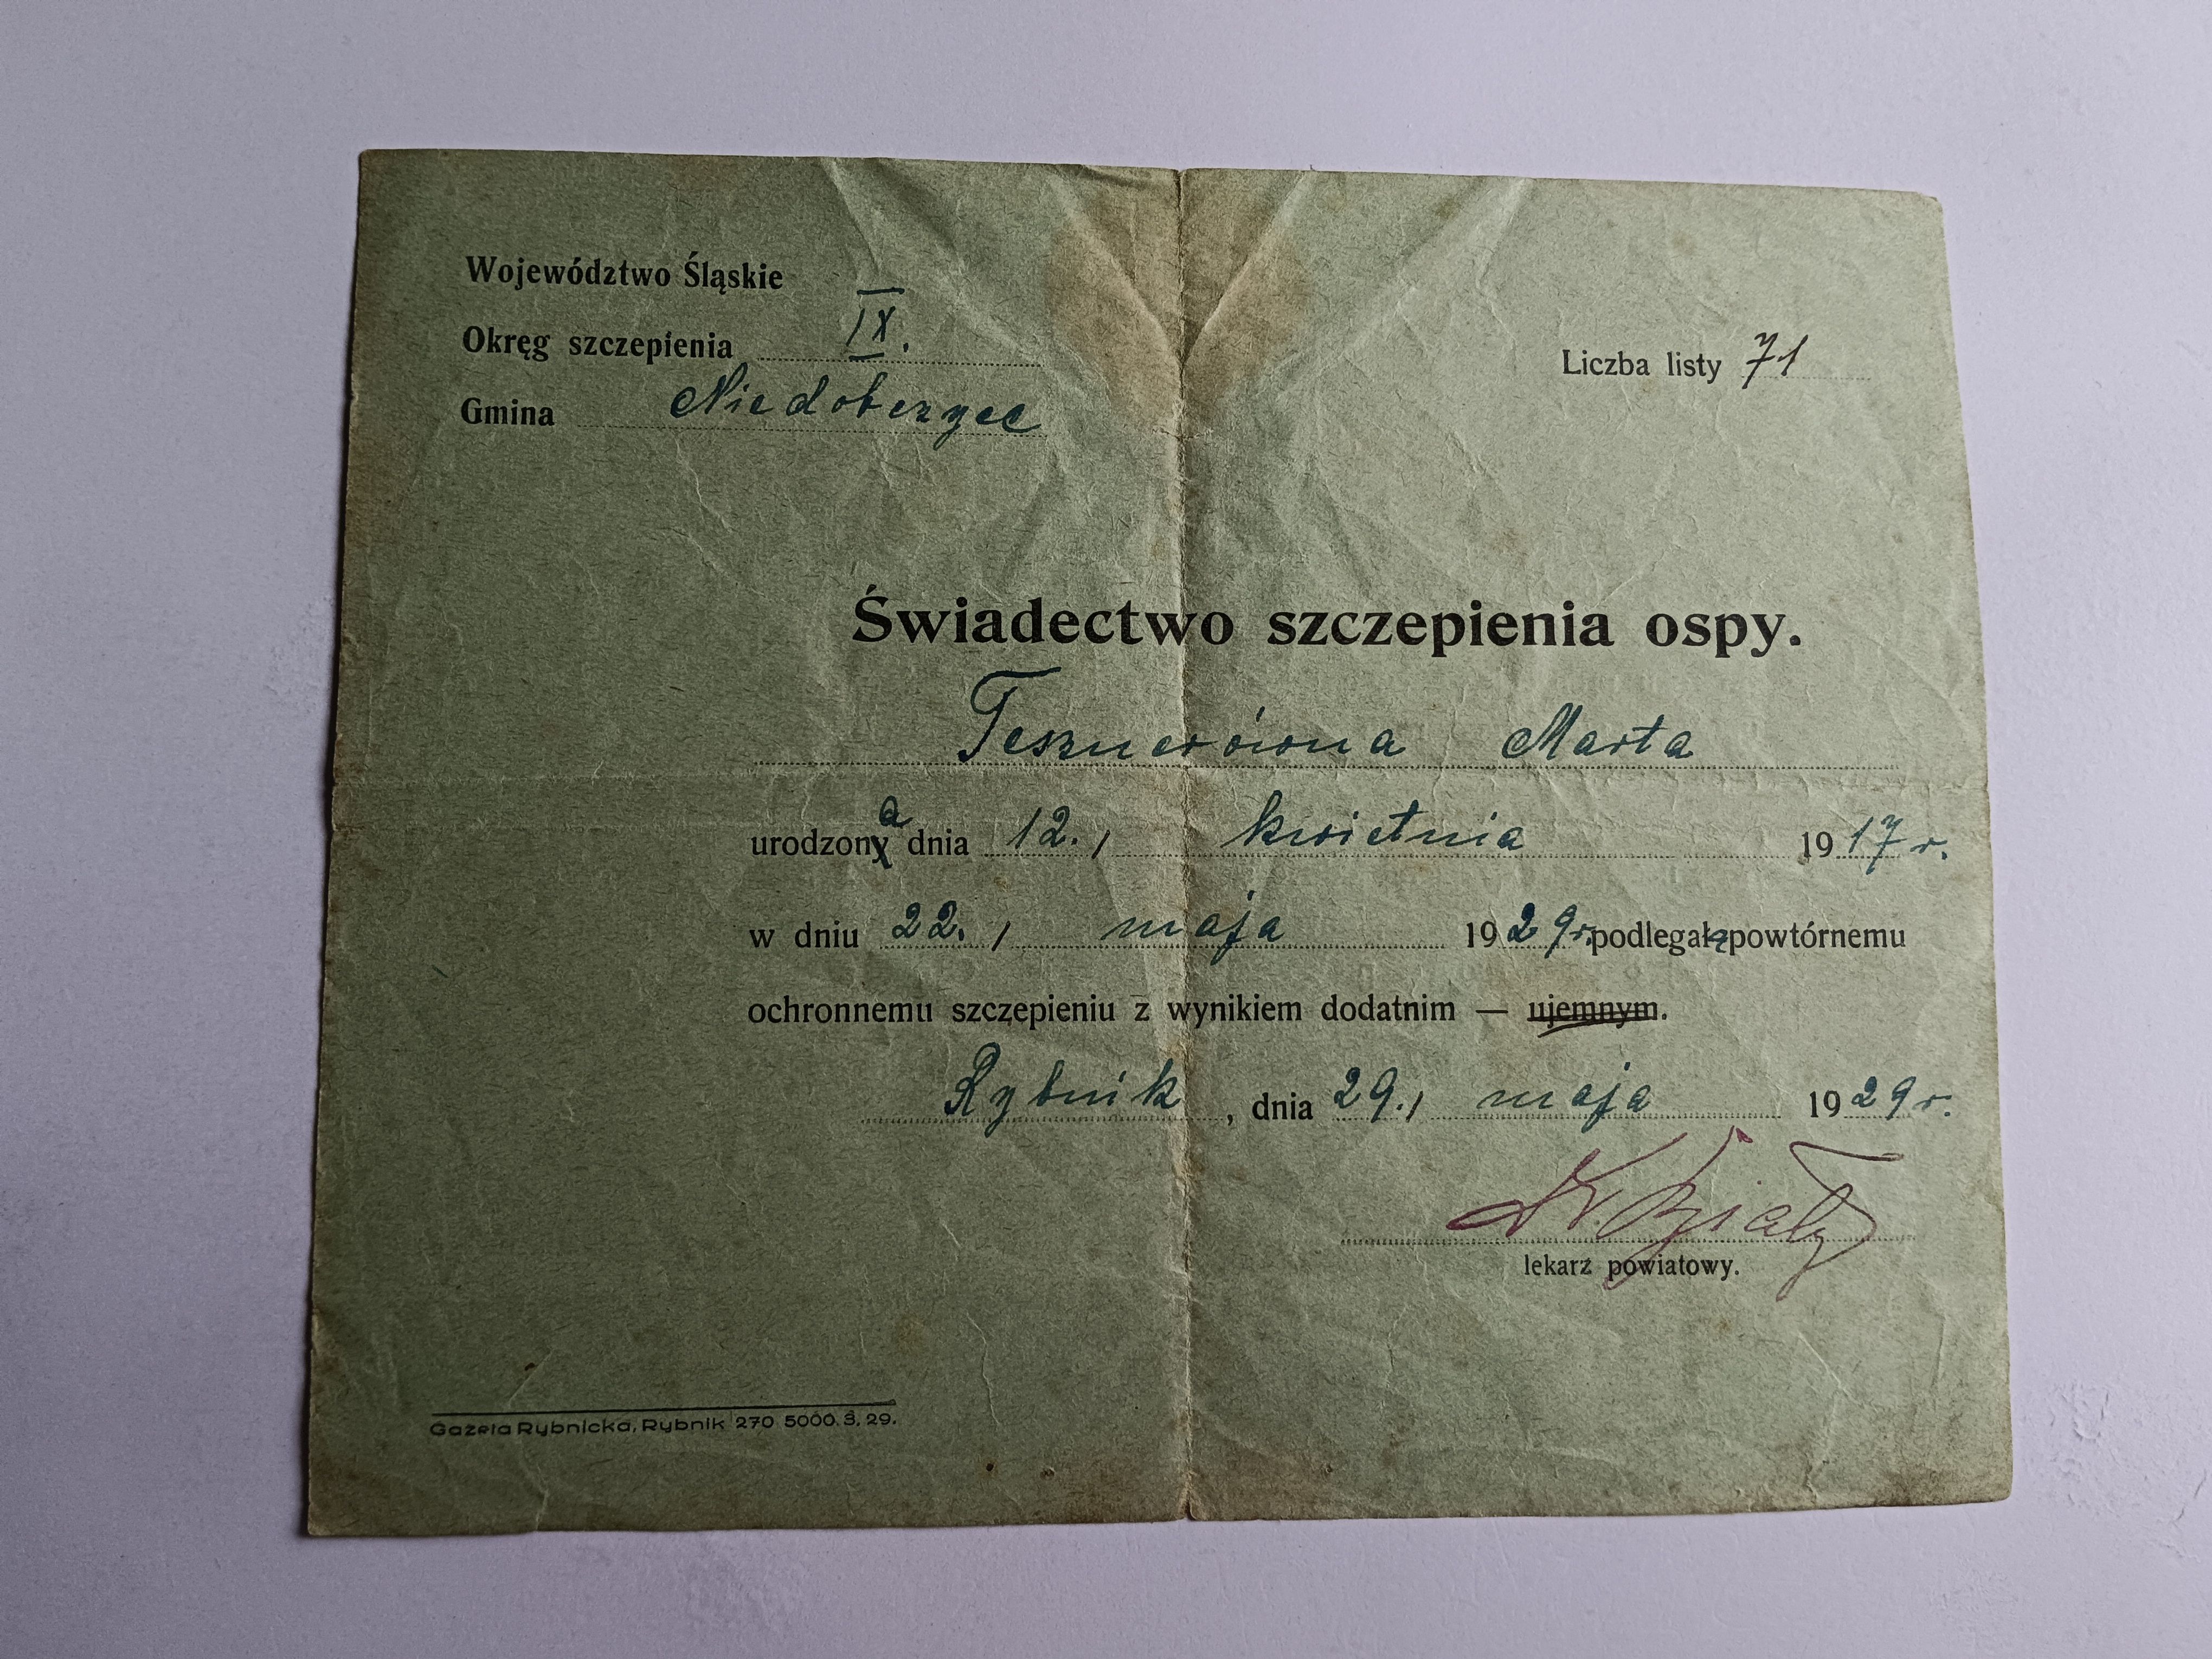 Województwo Śląskie
Okręg szczepienia IX.
Liczba listy 71
Gmina Niedobczyce
Świadectwo szczepienia ospy.
Tesznerówna Marta
urodzona dnia 12., kwietnia 1917 r.
w dniu 22., maja 1929 r. podlegałą powtórnemu
ochronnemu szczepieniu z wynikiem dodatnim — ujemnym.
Rybnik, dnia 29., maja 1929 r.
Dr. Biały
lekarz powiatowy.
Gazeta Rybnicka, Rybnik 270 5000. 3. 29.